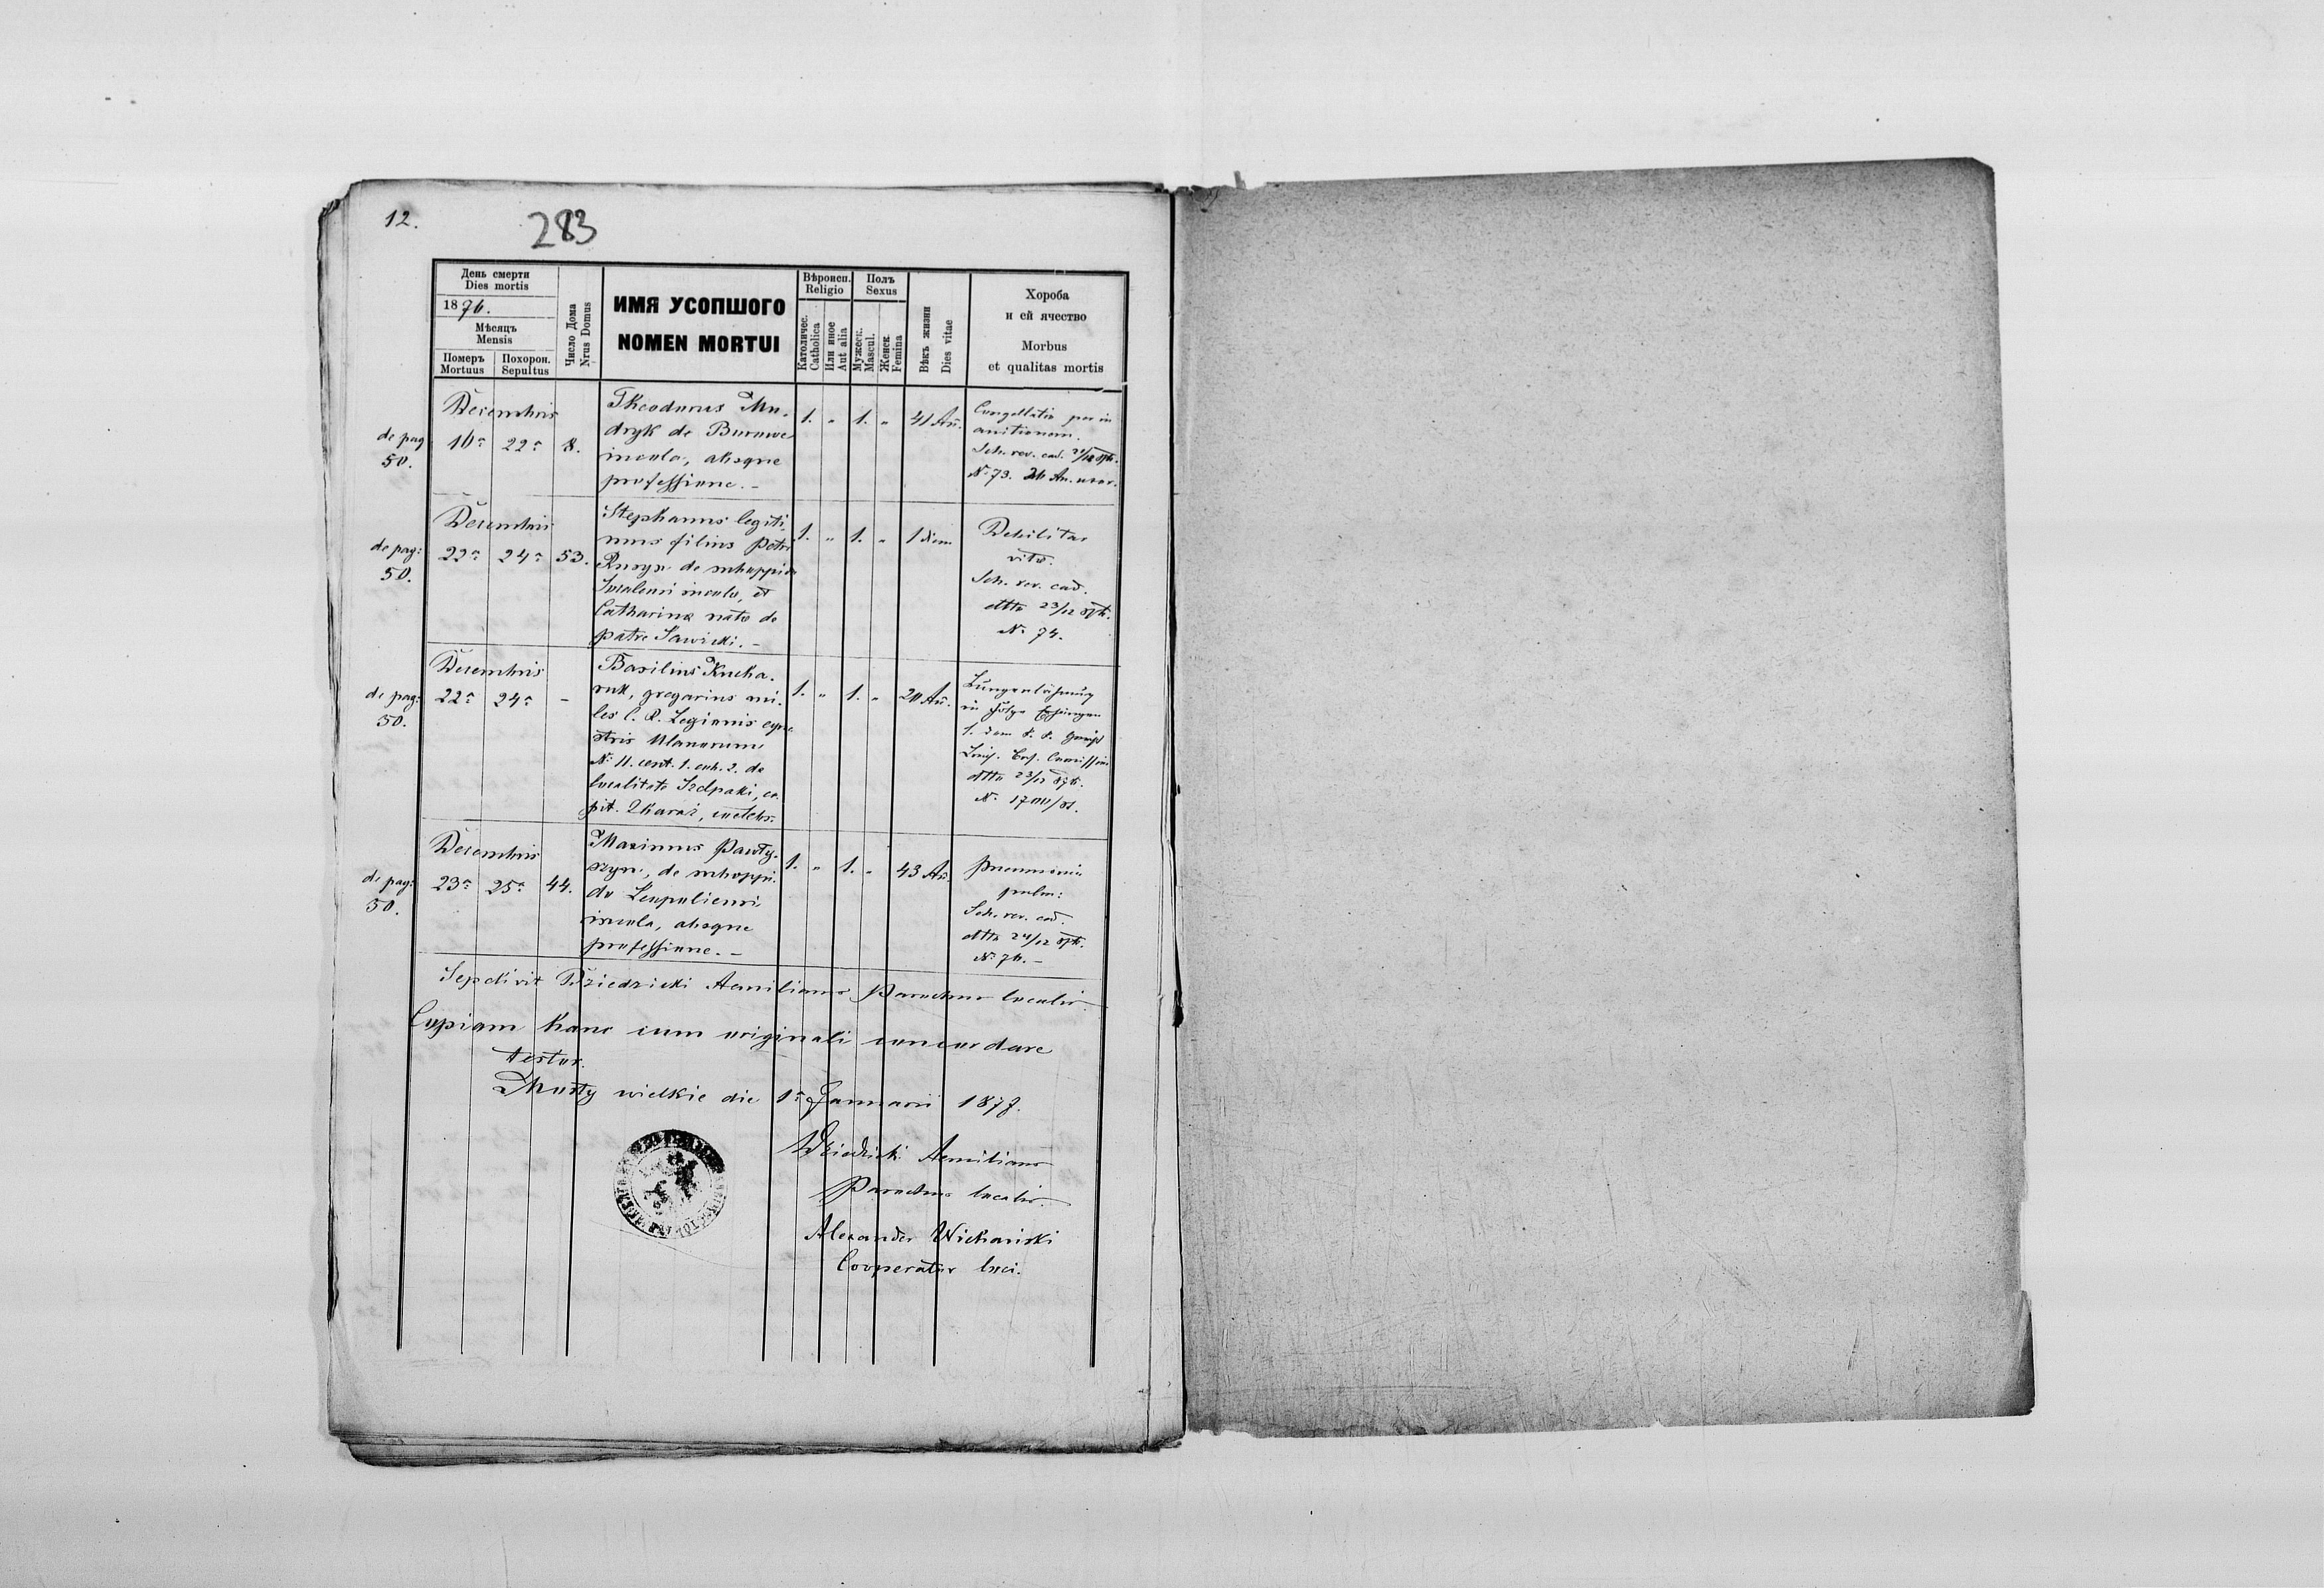 12.
283
День смерти
Dies mortis
1876.
Мѣсяцъ
Mensis
Померъ
Mortuus
Похорон.
Sepultus
Число Дома
Nrus Domus
ИМЯ УСОПШОГО
NOMEN MORTUI
Вѣроисп.
Religio
Католичес.
Catholica
Или иное
Aut alia
Полъ
Sexus
Мужеск.
Mascul.
Женск.
Femina
Вѣкъ жизни
Dies vitae
Хороба
и ей ячество
Morbus
et qualitas mortis
de pag
50.
Decembris
16ª 22ª 8.
Theodorus Mu-
dryk de Burowe
incola, absque
professione. –
1. " 1. " 41 An.
Congellatio per in
anitionem.
Sch. rev. cad.
Nº 73. 26 An. uxor.
de pag:
50.
Decembris
22ª 24ª 53.
Stephanus legiti-
mus filius Petri
Rusyn de suboppido
incola, et
Catharina nata de
patre Sawicki. –
1. " 1. " 1 diem
Debilitas
vitæ.
Sch. rev. cad.
dtto 23/12 876.
Nº 74.
de pag:
50.
Decembris
22ª 24ª –
Basilius Kucha-
ruk, gregarius mi-
les C. R. Legionis eque
stris Ulanorum
Nº 11. cent. 1. de
localitate Szelpaki, ca
pit. Zbaraż, coelebs.
1. " 1. " 20 An.
Lungenlähmung
in Folge
dtto 23/12 876.
de pag:
50.
Decembris
23ª 25ª 44.
Maximus Pawty-
szyn, de suboppi-
do Leopoliensi
incola, absque
professione. –
1. " 1. " 43 An.
Pneumonia
pulm:
Sch. rev. cad.
dtto 24/12 876.
Nº 76. –
Sepelivit Dziedzicki Aemilianus Parochus localis.
Copiam hanc cum originali concordare
testor.
Mosty wielkie die 1ª Januarii 1877.
Dziedzicki Aemilianus
Parochus localis.
Alexander
Cooperator loci.